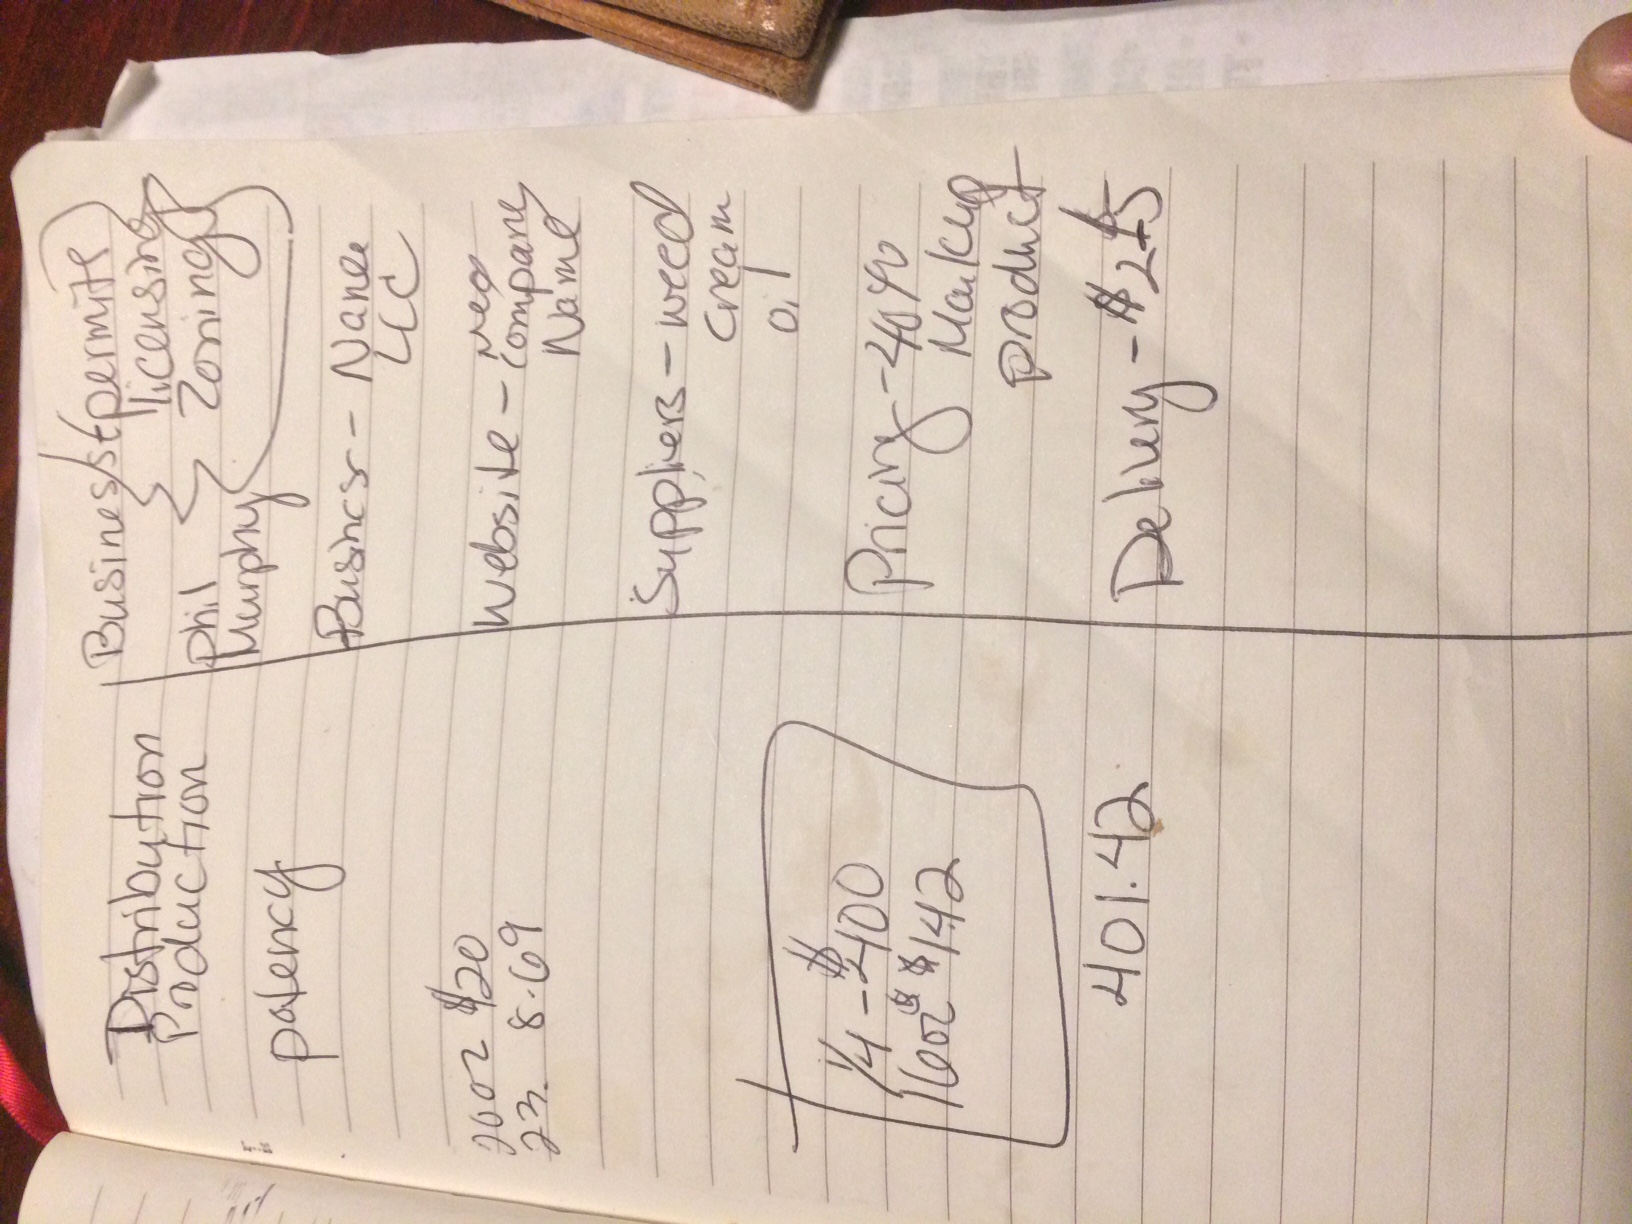 Distribution
Production
potency
20oz $20
23. 8.69
1/4 - $400
16oz $1.42
401.42
Business permits
licensing
Zoning
Phil
Murphy
Business - Name
LLC
Website -
company
Name
Suppliers - weed
cream
oil
Pricing - 40%
Markup
product
Delivery - $25